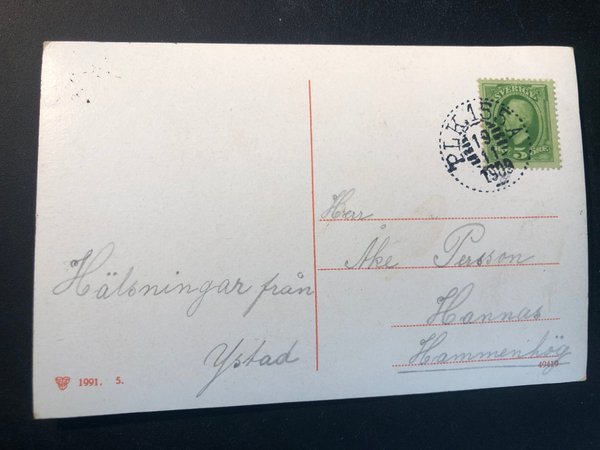 SVERIGE
5 ÖRE
PLK 155 A
19
11
1909
Herr
Åke Persson
Hannas
Hammenhög
Hälsningar från
Ystad
1991. 5.
49410